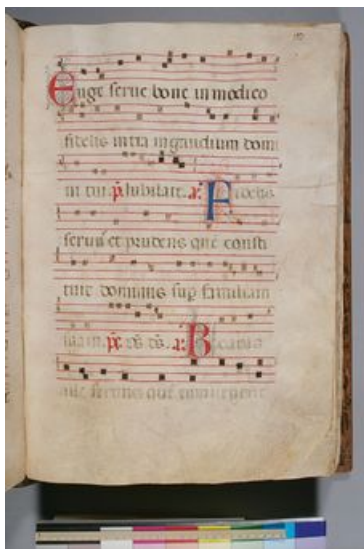 Euge serue bone in modico
fidelis intra in gaudium domi
ni tui. ps. Iubilate. a. Fidelis
seruus et prudens quē consti
tuit dominus sup familiam
suam. ps. a. Beatus
ille seruus quē